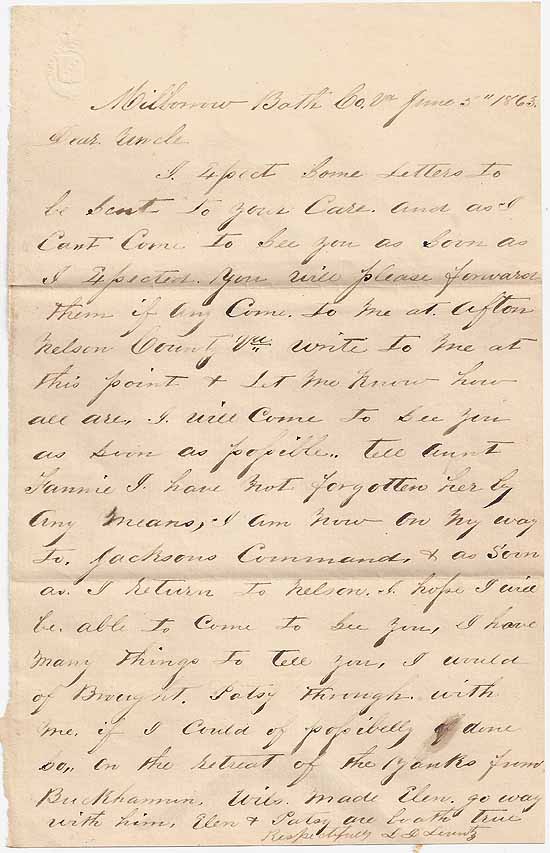 Millborrow Bath Co. Va June 5" 1863.
Dear Uncle
I Expect Some Letters to
be Sent to your Care. and as I
Cant Come to See you as Soon as
I Expected. you will please forward
them if Any Come. to me at. Afton
Nelson County Va. write to me at
this point & let me know how
all are, I. will Come to See you
as soon as possible.. tell Aunt
Fannie I. have not forgotten her by
Any means, I am now on My way
to. Jacksons Command, & as Soon
as. I return to Nelson. I. hope I will
be. able to Come to See you, I have
many things to tell you, I would
of Brought. Patsy through. with
me. if I could of possibelly of done
so,. on the retreat of the Yanks from
Buckhannon, Wils. made Elen. go way
with him, Elen & Patsy are boath true
Respectfully L D